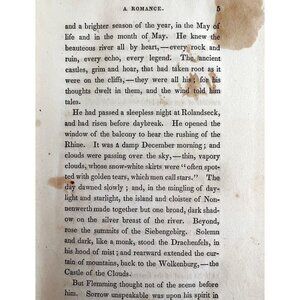 A ROMANCE. 5
and a brighter season of the year, in the May of
life and in the month of May. He knew the
beauteous river all by heart,—every rock and
ruin, every echo, every legend. The ancient
castles, grim and hoar, that had taken root as it
were on the cliffs,—they were all his; for his
thoughts dwelt in them, and the wind told him
tales.
He had passed a sleepless night at Rolandseck,
and had risen before daybreak. He opened the
window of the balcony to hear the rushing of the
Rhine. It was a damp December morning; and
clouds were passing over the sky,—thin, vapory
clouds, whose snow-white skirts were "often spot-
ted with golden tears, which men call stars." The
day dawned slowly; and, in the mingling of day-
light and starlight, the island and cloister of Non-
nenwerth made together but one broad, dark shad-
ow on the silver breast of the river. Beyond,
rose the summits of the Siebengebirg. Solemn
and dark, like a monk, stood the Drachenfels, in
his hood of mist; and rearward extended the cur-
tain of mountains, back to the Wolkenburg,—the
Castle of the Clouds.
But Flemming thought not of the scene before
him. Sorrow unspeakable was upon his spirit in